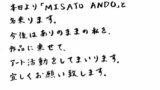 本日より「MISATO ANDO」と
名乗ります。
今後はありのままの私を、
作品に乗せて、
アート活動をしてまいります。
宜しくお願い致します。